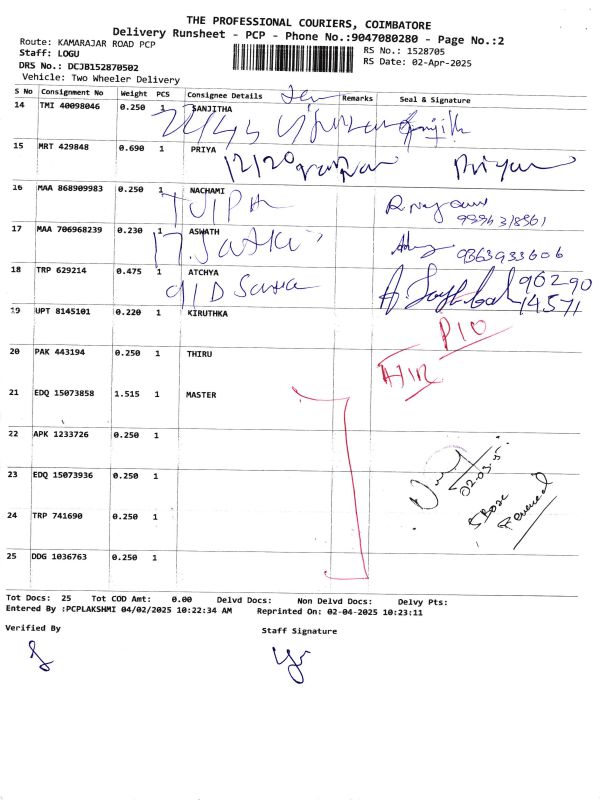 THE PROFESSIONAL COURIERS, COIMBATORE
Delivery Runsheet - PCP - Phone No.:9047080280 - Page No.:2
Route: KAMARAJAR ROAD PCP
RS No.: 1528705
Staff: LOGU
RS Date: 02-Apr-2025
DRS No.: DCJB152870502
Vehicle: Two Wheeler Delivery
S No Consignment No Weight PCS Consignee Details Remarks Seal & Signature
14 TMI 40098046 0.250 1 SANJITHA
15 MRT 429848 0.690 1 PRIYA
12/20 Priya
16 MAA 868909983 0.250 1 NACHAMI
17 MAA 706968239 0.230 1 ASWATH
9363933606
18 TRP 629214 0.475 1 ATCHYA
90290
14571
19 UPT 8145101 0.220 1 KIRUTHKA
P10
20 PAK 443194 0.250 1 THIRU
21 EDQ 15073858 1.515 1 MASTER
22 APK 1233726 0.250 1
23 EDQ 15073936 0.250 1
24 TRP 741690 0.250 1
25 DDG 1036763 0.250 1
Tot Docs: 25 Tot COD Amt: 0.00 Delvd Docs: Non Delvd Docs: Delvy Pts:
Entered By :PCPLAKSHMI 04/02/2025 10:22:34 AM Reprinted On: 02-04-2025 10:23:11
Verified By
Staff Signature